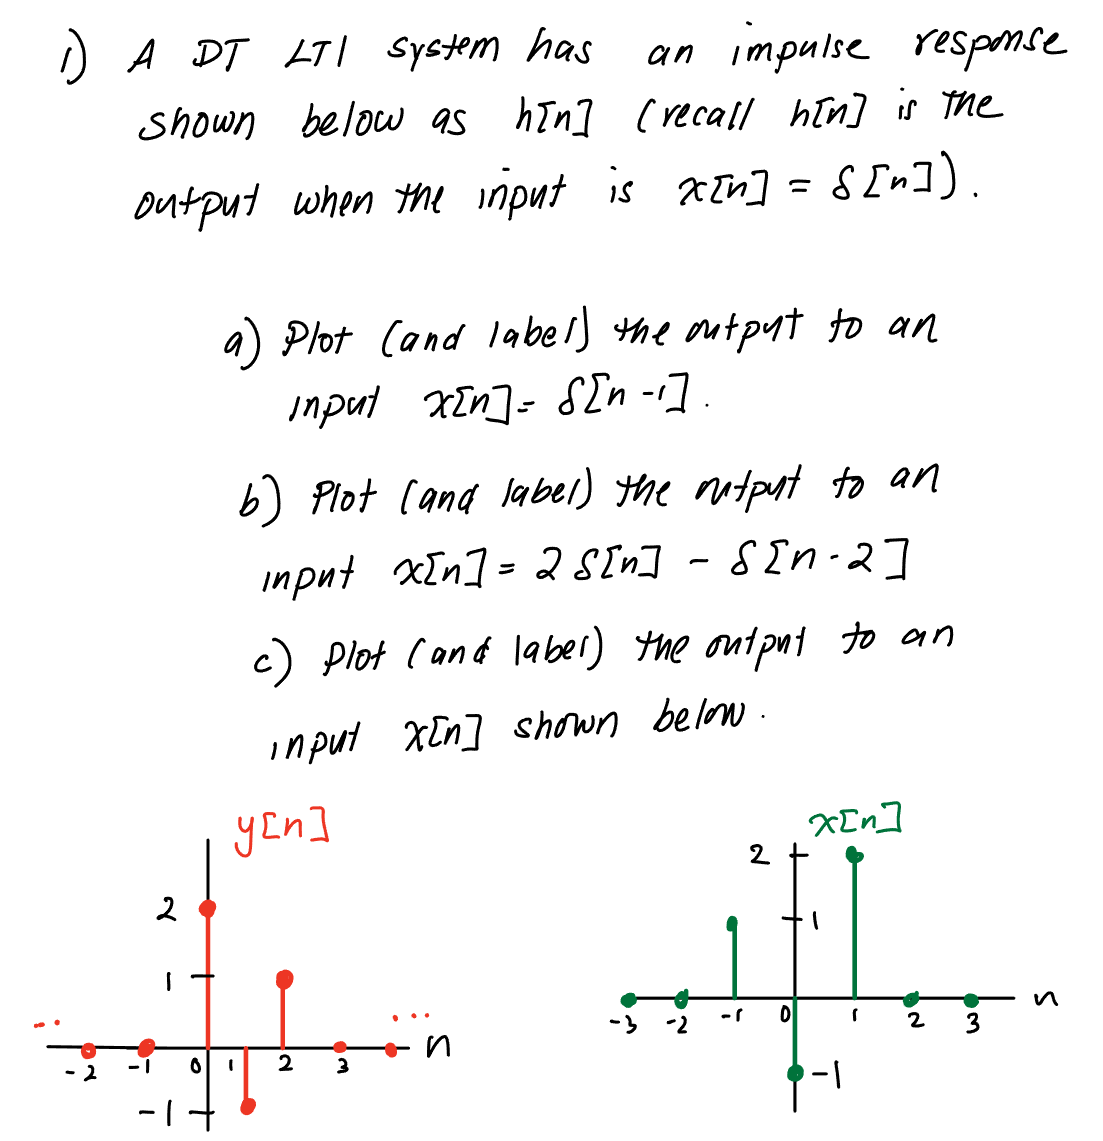 1) A DT LTI system has an impulse response
shown below as h[n] (recall h[n] is the
output when the input is x[n] = δ[n]).
a) Plot (and label) the output to an
input x[n] = δ[n-1].
b) Plot (and label) the output to an
input x[n] = 2 δ[n] - δ[n-2]
c) Plot (and label) the output to an
input x[n] shown below.
y[n]
2
1
...
...
n
-2 -1 0 1 2 3
-1
x[n]
2
1
n
-3 -2 -1 0 1 2 3
-1